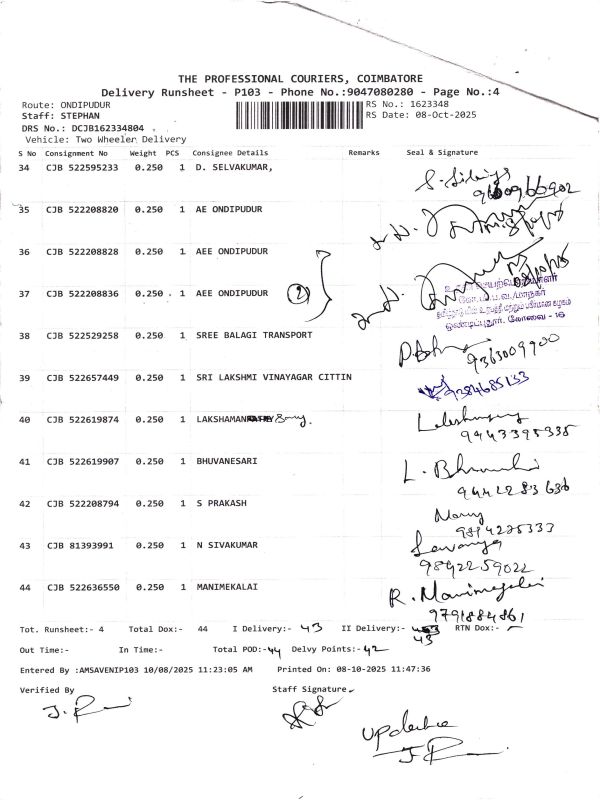 THE PROFESSIONAL COURIERS, COIMBATORE
Delivery Runsheet - P103 - Phone No.:9047080280 - Page No.:4
Route: ONDIPUDUR RS No.: 1623348
Staff: STEPHAN RS Date: 08-Oct-2025
DRS No.: DCJB162334804
Vehicle: Two Wheeler Delivery
S No Consignment No Weight PCS Consignee Details Remarks Seal & Signature
34 CJB 522595233 0.250 1 D. SELVAKUMAR,
35 CJB 522208820 0.250 1 AE ONDIPUDUR
36 CJB 522208828 0.250 1 AEE ONDIPUDUR
37 CJB 522208836 0.250 1 AEE ONDIPUDUR 2
ஒண்டிப்புதூர், கோவை - 16
38 CJB 522529258 0.250 1 SREE BALAGI TRANSPORT
9363009900
39 CJB 522657449 0.250 1 SRI LAKSHMI VINAYAGAR CITTIN 9384685133
40 CJB 522619874 0.250 1 LAKSHMAN
9443395335
41 CJB 522619907 0.250 1 BHUVANESARI
42 CJB 522208794 0.250 1 S PRAKASH
43 CJB 81393991 0.250 1 N SIVAKUMAR Lavanya
9842259022
44 CJB 522636550 0.250 1 MANIMEKALAI R. Manimegalai
9791884861
Tot. Runsheet:- 4 Total Dox:- 44 I Delivery:- 43 II Delivery:- 43 RTN Dox:- -
Out Time:- In Time:- Total POD:- 44 Delvy Points:- 42
Entered By :AMSAVENIP103 10/08/2025 11:23:05 AM Printed On: 08-10-2025 11:47:36
Verified By Staff Signature